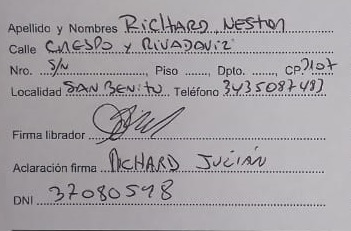 Apellido y Nombres RICHARD NESTOR
Calle CRESPO y RIVADAVIA
Nro. S/N Piso ......, Dpto. ......, CP 3107
Localidad SAN BENITO Teléfono 3435087487
Firma librador
Aclaración firma RICHARD JULIÁN
DNI 37080598